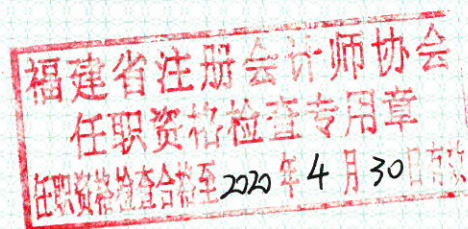 福建省注册会计师协会
任职资格检查专用章
任职资格检查合格至2020年4月30日有效